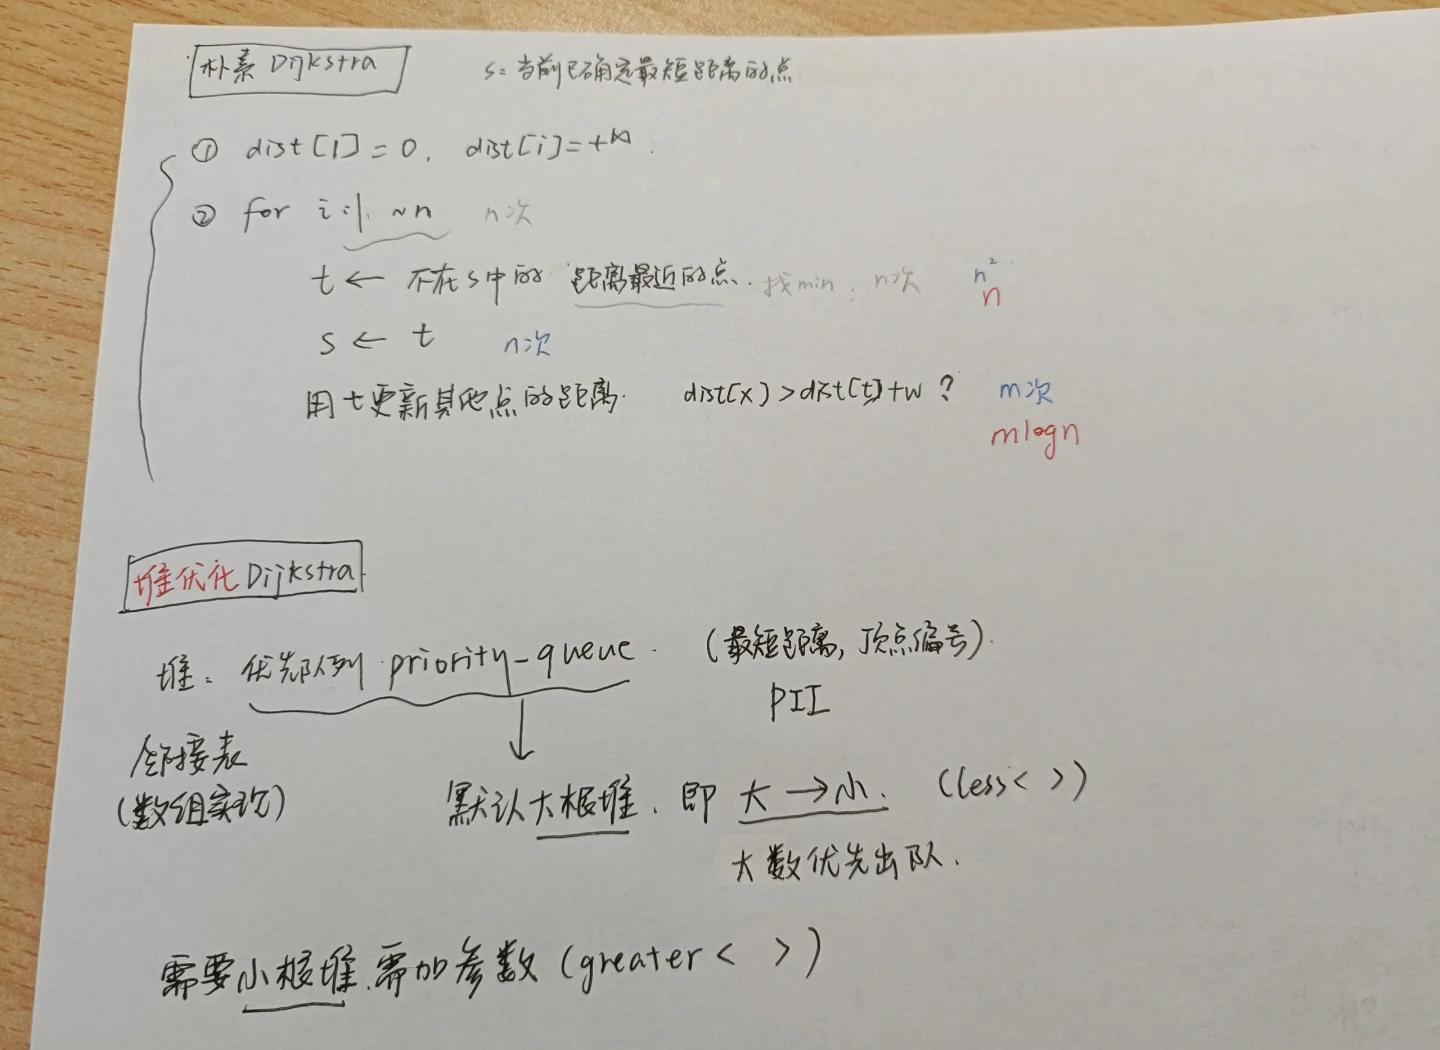 朴素 Dijkstra
S: 当前已确定最短距离的点
① dist[1]=0, dist[i]=+∞.
② for i:1 ~n n次
t ← 不在S中的 距离最近的点. 找min: n次 n²
n
S ← t n次
用t更新其他点的距离. dist[x]>dist[t]+w ? m次
mlogn
堆优化 Dijkstra
堆: 优先队列 priority-queue. (最短距离, 顶点编号).
PII
邻接表
(数组实现)
默认大根堆. 即 大→小. (less< >)
大数优先出队.
需要小根堆.需加参数(greater< >)